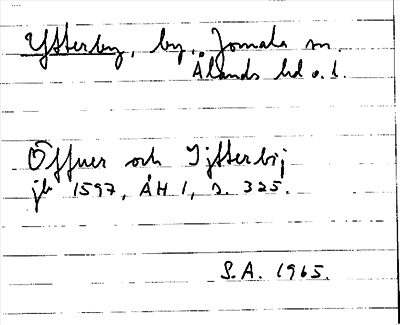 Ytterby, by, Jomala sn.
Ålands hd o. l.
Öffuer och Ijtterbij
jb 1597, ÅH 1, s. 325.
S.A. 1965.